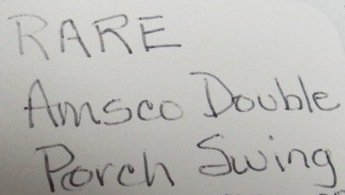 RARE
Amsco Double
Porch Swing